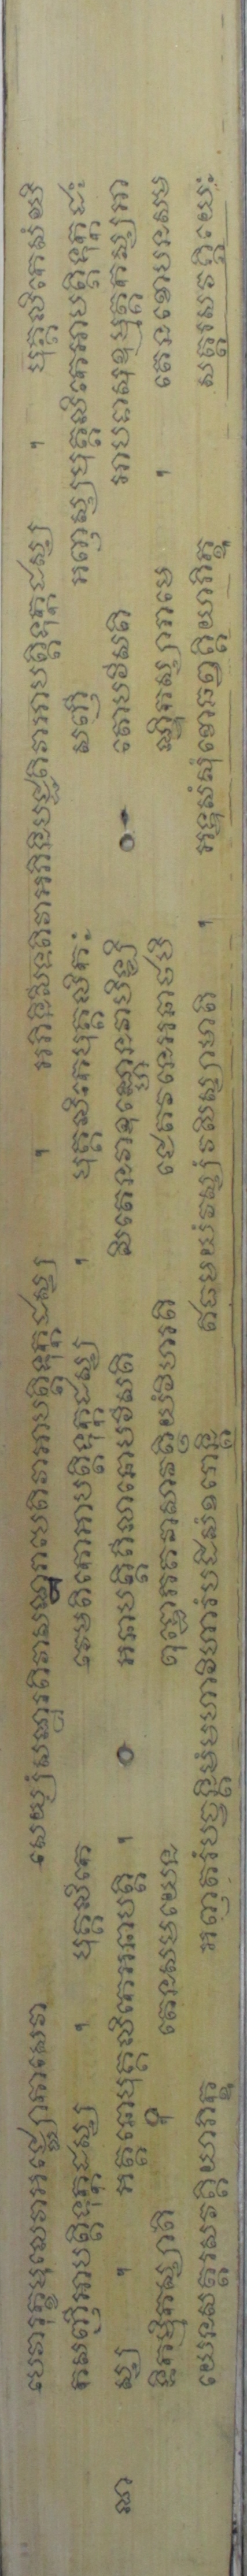 បេវារុក្ខមុលេវាអជ្ឈោកាសេវា សេយ្យំសណ្ឋរតិវាសណ្ឋរាបេតិវាអាបត្តិទុក្កដស្ស ។ អភិនិសីទតិវាអភិនិបជ្ជតិវាអាបត្តិទុក្កដស្ស ។ បុគ្គលិកេសំឃិ
កសញ្ញីអាបត្តិទុក្កដស្ស ។ បុគ្គលិកេ វេមតិកោអាបត្តិទុក្កដស្ស ។ បុគ្គលិកេបុគ្គលិកៈ សញ្ញី អញ្ញស្សបុគ្គលិកេអាបត្តិទុក្កដៈ
ណ ស្ស ។ អត្តនោបុគ្គលិកេអនាបត្តិ ។ អនាបត្តិគិលានោបវិសតិ សិតេនវាឧណ្ហេនវាបិឡ្ហិ តោបវិសតិ អាបទាសុឧម្មត្តកស្សអា
ទិកម្មិកស្សាតិ ។ តេនសមយេន ពុទ្ធោភគវាសាវត្ថិយំវិហរតិ ជេតវនេអនាថបិ ណ្ឌិកស្សារាមេ ។ តេនខោបនសម
យេនសត្តរសវគ្គិយាភិក្ខុ អញ្ញតរំបច្ចន្តិមំមហាវិហារំបដិសំខរោន្តិ ឥធមយំវស្សំវសិស្សាមាតិ ។ អទ្ទសំសុំខោឆព្វគ្គិយាភិក្ខុ សត្តរសវគ្គិយេៈ